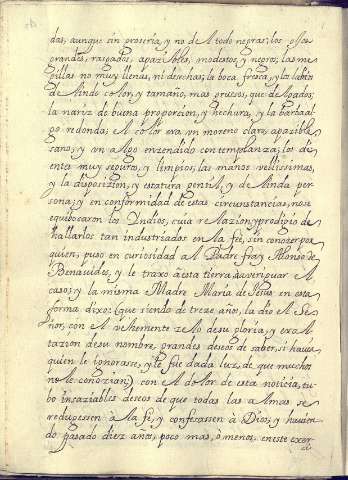 das, aunque sin groseria, y no del todo negras; los ojos
grandes, rasgados, apazibles, modestos, y negros; las me
gillas no muy llenas, ni deschas; la boca fresca, y los labios
de lindo color, y tamaño, mas gruesos, que delgados;
la nariz de buena proporcion, y hechura, y la barba al
go redonda; el color era un moreno claro, apazible,
sano, y un algo enzendido con templanza; los di
entes muy seguros, y limpios; las manos vellissimas,
y la disposizion, y estatura gentil, y de linda per
sona; y en conformidad de estas circunstancias, no se
equibocaron los Yndios, cuia relazion y prodigio de
hallarlos tan industriados en la fe, sin conozer por
quien, puso en curiosidad al Padre fray Alonso de
Benauides, y le traxo à esta tierra, à averiguar el
caso; y la misma Madre Maria de Jesus en esta
forma dixo: (que siendo de treze años, la dio el Se
ñor, con el vehemente zelo de su gloria, y exal
tazion de su nombre, grandes deseos de saber, si havia
quien le ignorase, y le fue dada luz, de que muchos
no le conozian;) con el dolor de esta noticia, tu
bo insaziables deseos de que todas las almas se
reduxessen à la fè, y confessassen à Dios; y havien
do pasado diez años, poco mas, ò menos, en este exer